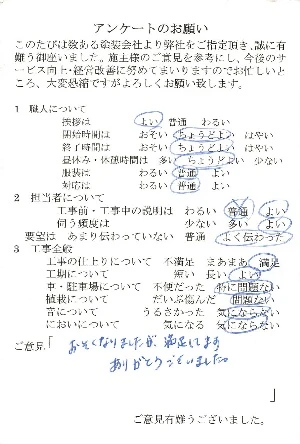 アンケートのお願い
このたびは数ある塗装会社より弊社をご指定頂き、誠に有
難う御座いました。施主様のご意見を参考にし、今後のサ
ービス向上・経営改善に努めてまいりますのでお忙しいと
ころ、大変恐縮ですがよろしくお願い致します。
1 職人について
挨拶は よい 普通 わるい
開始時間は おそい ちょうどよい はやい
終了時間は おそい ちょうどよい はやい
昼休み・休憩時間は 多い ちょうどよい 少ない
服装は わるい 普通 よい
対応は わるい 普通 よい
2 担当者について
工事前・工事中の説明は わるい 普通 よい
伺う頻度は 少ない 多い よい
要望は あまり伝わっていない 普通 よく伝わった
3 工事全般
工事の仕上りについて 不満足 まあまあ 満足
工期について 短い 長い よい
車・駐車場について 不便だった 特に問題ない
植栽について だいぶ傷んだ 問題ない
音について うるさかった 気にならない
においについて 気になる 気にならない
ご意見「 おそくなりましたが 満足してます
ありがとうございました。
」
ご意見有難うございました。